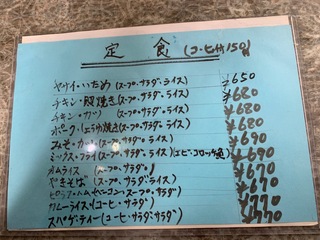 定食 (コーヒ付150円)
ヤサイいため(スープ.サラダ.ライス) ¥650
チキン殿焼き(スープ.サラダ.ライス) ¥680
チキンカツ(スープ.サラダ.ライス) ¥680
ポーク(ショウガ)焼き(スープ.サラダ.ライス) ¥680
みそカツ(スープ.サラダ.ライス) ¥690
ミックスフライ(スープ.サラダ.ライス)(エビ.コロッケ) ¥690
オムライス(スープ.サラダ) ¥670
やきそば(スープ.サラダ.ライス) ¥670
(ベーコン.スープ.サラダ) ¥670
カレーライス(コーヒ.サラダ) ¥770
スパゲティー(コーヒ.サラダ) ¥770